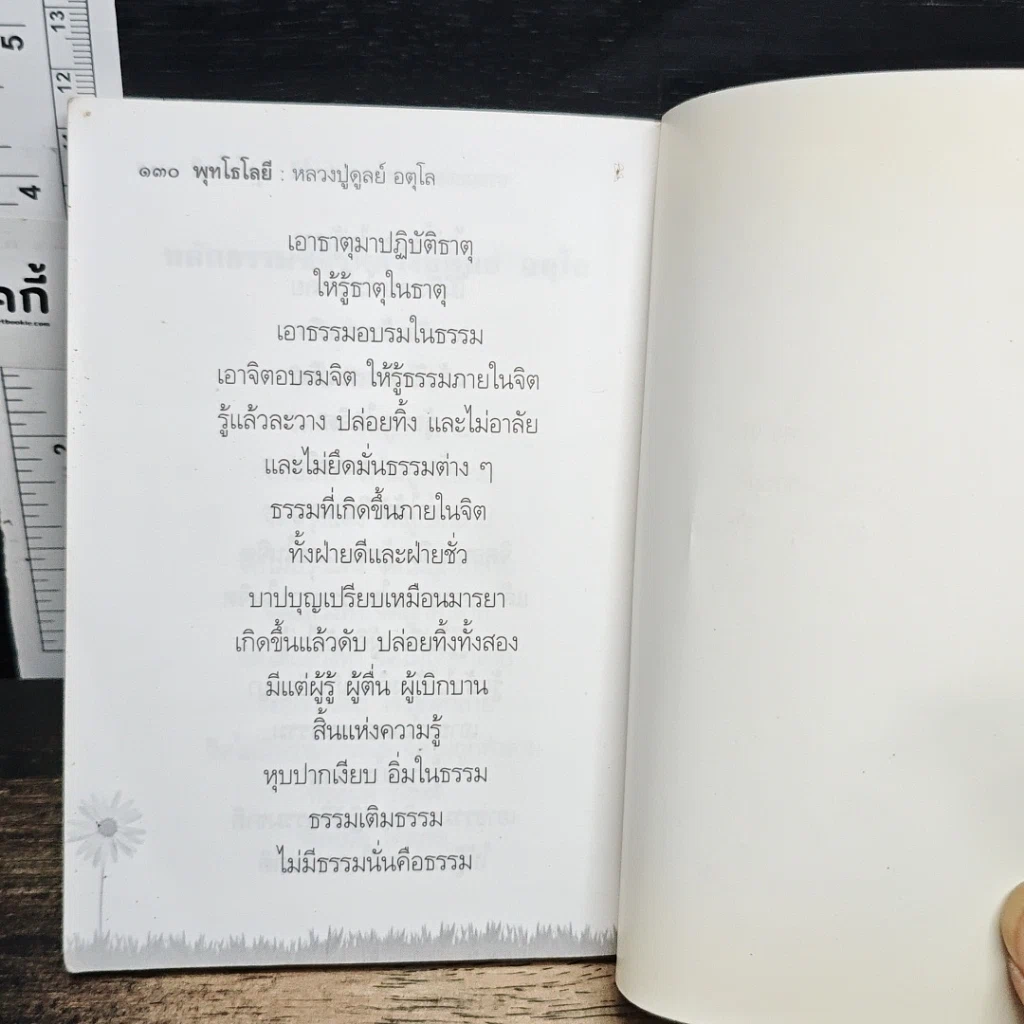 ๑๓๐ พุทโธโลยี : หลวงปู่ดูลย์ อตุโล
เอาธาตุมาปฏิบัติธาตุ
ให้รู้ธาตุในธาตุ
เอาธรรมอบรมในธรรม
เอาจิตอบรมจิต ให้รู้ธรรมภายในจิต
รู้แล้วละวาง ปล่อยทิ้ง และไม่อาลัย
และไม่ยึดมั่นธรรมต่าง ๆ
ธรรมที่เกิดขึ้นภายในจิต
ทั้งฝ่ายดีและฝ่ายชั่ว
บาปบุญเปรียบเหมือนมารยา
เกิดขึ้นแล้วดับ ปล่อยทิ้งทั้งสอง
มีแต่ผู้รู้ ผู้ตื่น ผู้เบิกบาน
สิ้นแห่งความรู้
หุบปากเงียบ อิ่มในธรรม
ธรรมเติมธรรม
ไม่มีธรรมนั่นคือธรรม
5
4
2
13
12